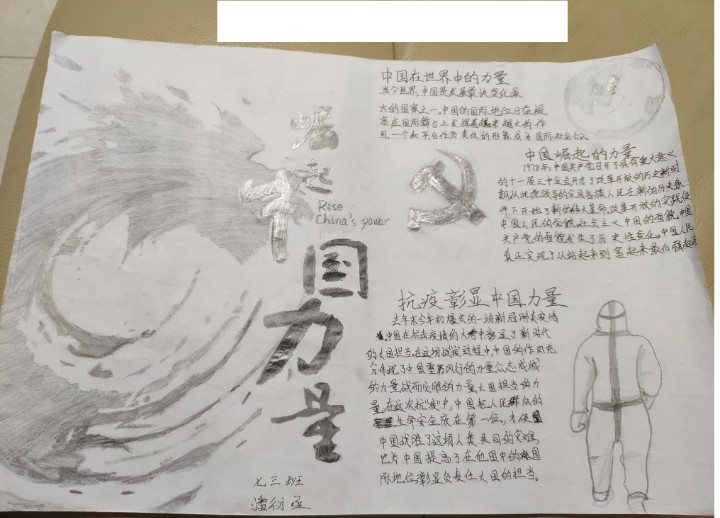 崛起
Rise
China's power
中
国
力
量
七三班
中国在世界中的力量
当今世界,中国是发展最快变化最
大的国家之一,中国的国际地位日益提
高在国际舞台上发挥着越来越大的作
用,一个和平合作负责任的形象
中国崛起的力量
1978年,中国共产党召开了具有重大意义
的十一届三中全会开启了改革开放的历史新时
人民在新的历史条
件下开始了新的伟大革命,改革开放的实践使
中国人民的面貌社会主义中国的面貌,中国
共产党的面貌发生了历史性变化,中国人民
真正实现了从站起来到富起来
抗疫彰显中国力量
去年末今年初爆发的一场新冠肺炎疫情
中国在抗击疫情的
的大国担当,在这场战疫过程中,中国的作风充
分体现了中国雷厉风行的力量众志成城
的力量战而必胜的力量大国担当的力
量,在这次抗疫中,中国把人民群众的
生命安全放在第一位,才使
中国战胜了这场人类共同的灾难,
也为中国提高了在他国中的国
际地位彰显负责任大国的担当。